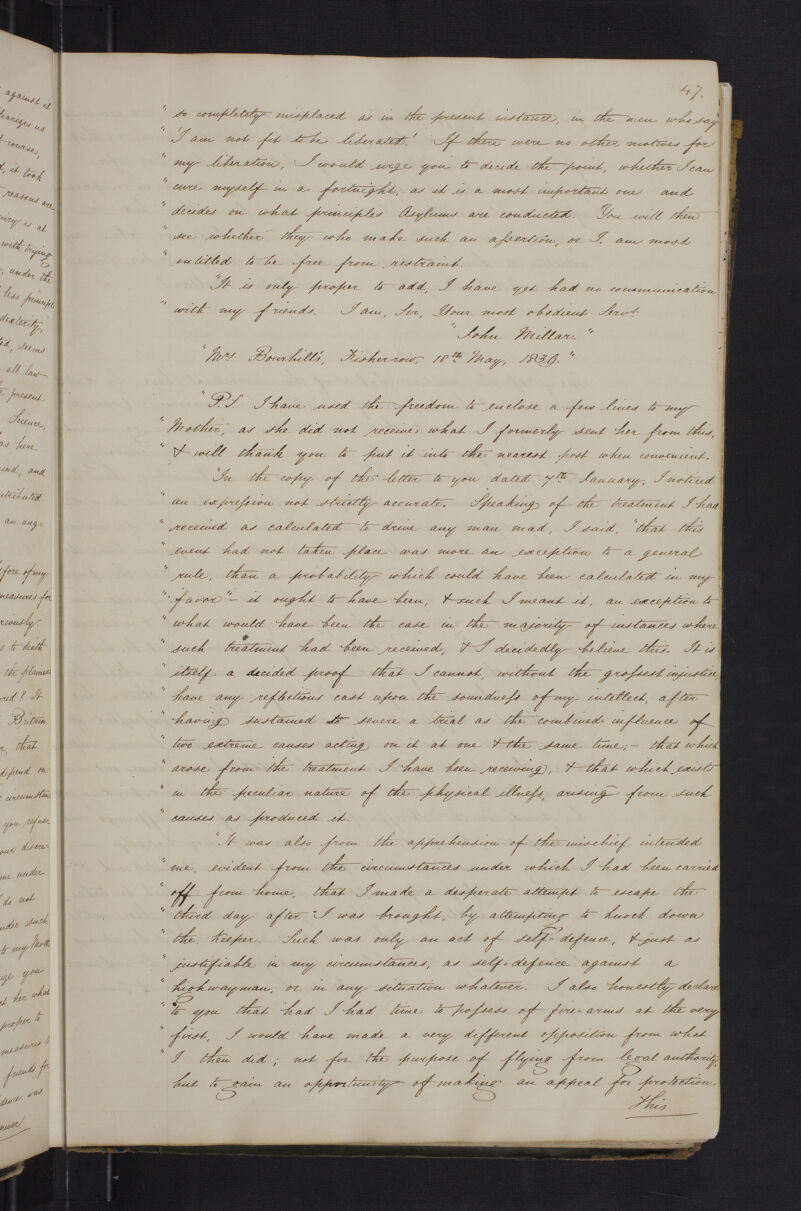 against it
charges us
course,
d, it took
reasons are
ury is at
with trying
, under the
less principle
dexterity,
ed, seems
all law
present
Science,
as here
and, and
ntributed
an ang-
fore of my
measures for
riously.
s to death
the flames
red? It
Britain
r, that
depend on
circumstan
you refuse
our discre-
me under
do not
under such
to my Moth
ge you
t her what
proper to
measures
friends for
dence was
never
47.
" so completely misplaced as in the present instance, in the men who say
" 'I am not fit to be liberated.' If there were no other motives for
" my liberation, I would urge you to decide the point, whether I can
" cure myself in a fortnight, as it is a most important one and
" decides on what principles Asylums are conducted. You will then
" see whether they who make such an assertion, or I, am most
" entitled to be free from restraint.
"It is only proper to add, I have yet had no communication
" with my friends. I am, Sir, Your most obedient Servt.
"John Millar."
"Mrs Bourhill's, Fisherrow, 18th May, 1839."
"P.S. I have used the freedom to enclose a few lines to my
" Mother, as she did not receive what I formerly sent her from this,
" & will thank you to put it into the nearest post when convenient.
"In the copy of the letter to you dated 7th January, I noticed
" an expression not strictly accurate. Speaking of the treatment I had
" received as calculated to drive any man mad, I said, "that this
" event had not taken place was more an exception to a general
" rule, than a probability which could have been calculated in my
" favor" - it ought to have been, & such I meant it, an exception to
" what would have been the case in the majority of instances where
" such treatment had been received, & I decidedly believe this. It is
" itself a decided proof that I cannot, without the grossest injustice,
" have any reflections cast upon the soundness of my intellect, after
" having sustained so severe a trial as the combined influence of
" two extreme causes acting on it at one & the same time; - that which
" arose from the treatment I have been receiving, & that which exists
" in the peculiar nature of the physical illness, arising from such
" causes as produced it.
"It was also from the apprehension of the mischief intended
" me, evident from the circumstances under which I had been carried
" off from home, that I made a desperate attempt to escape the
" third day after I was brought, by attempting to knock down
" the keeper. Such was only an act of self-defence, & just as
" justifiable in my circumstances, as self-defence against a
" highwayman, or in any situation whatever. I also honestly declare
" to you that had I had time to possess of fire-arms at the very
" first, I would have made a very different opposition from what
" I then did; not for the purpose of flying from legal authority,
but to gain an opportunity of making an appeal for protection.
This